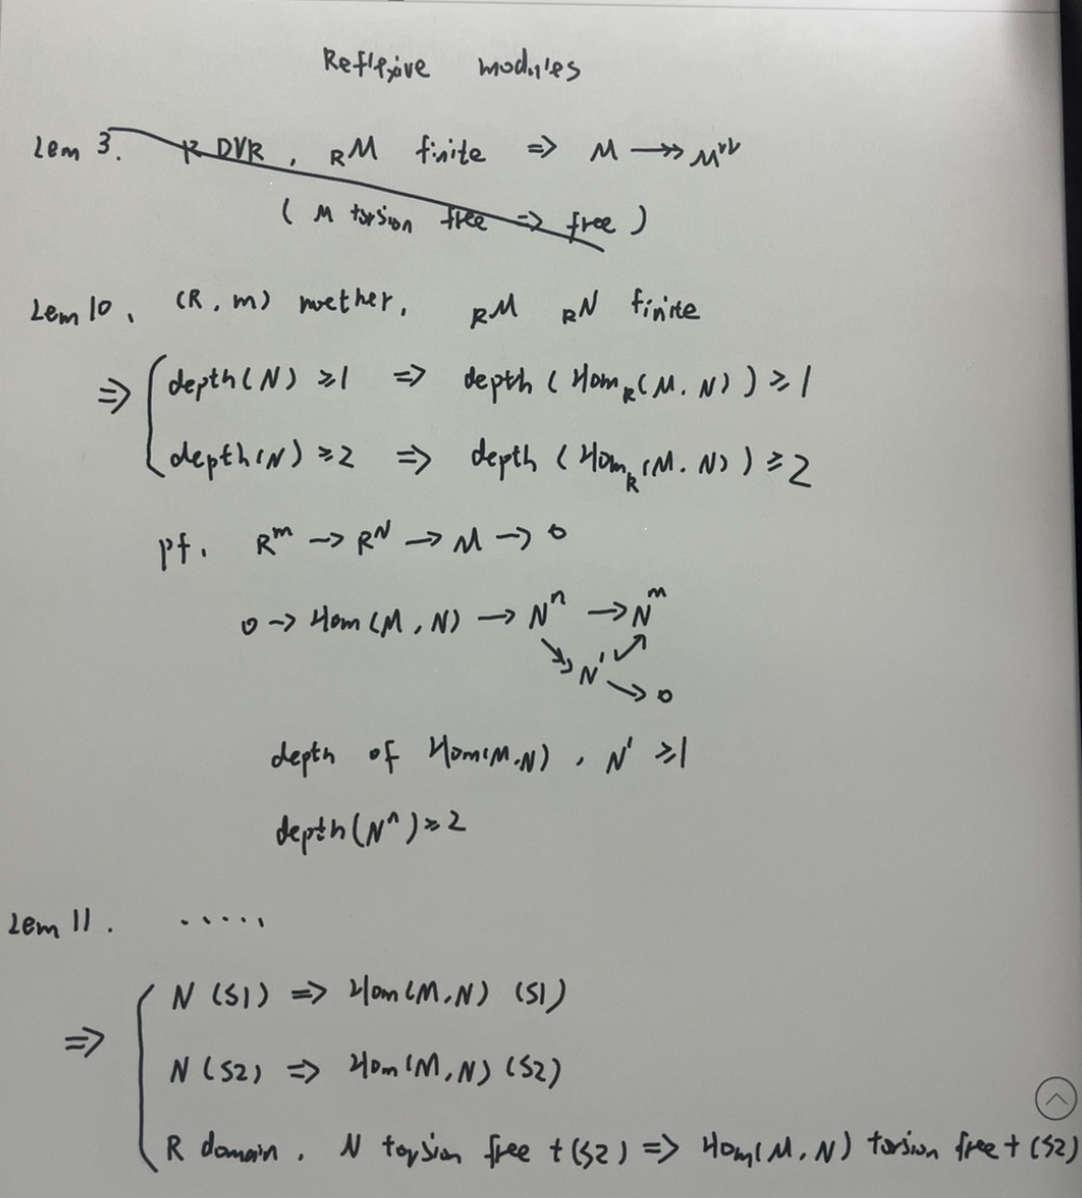 Reflexive modules
Lem 3. R DVR, RM finite ⇒ M ↠ M^∨∨
(M torsion free ⇒ free)
Lem 10. (R, m) noether, RM RN finite
⇒ { depth(N) ≥ 1 ⇒ depth(Hom_R(M, N)) ≥ 1
depth(N) ≥ 2 ⇒ depth(Hom_R(M, N)) ≥ 2
pf. R^m → R^N → M → 0
0 → Hom(M, N) → N^n → N^m
↘ N' ↗
↘ 0
depth of Hom(M, N), N' ≥ 1
depth(N^n) ≥ 2
Lem 11. .....
⇒ { N (S1) ⇒ Hom(M, N) (S1)
N (S2) ⇒ Hom(M, N) (S2)
R domain, N torsion free + (S2) ⇒ Hom(M, N) torsion free + (S2)